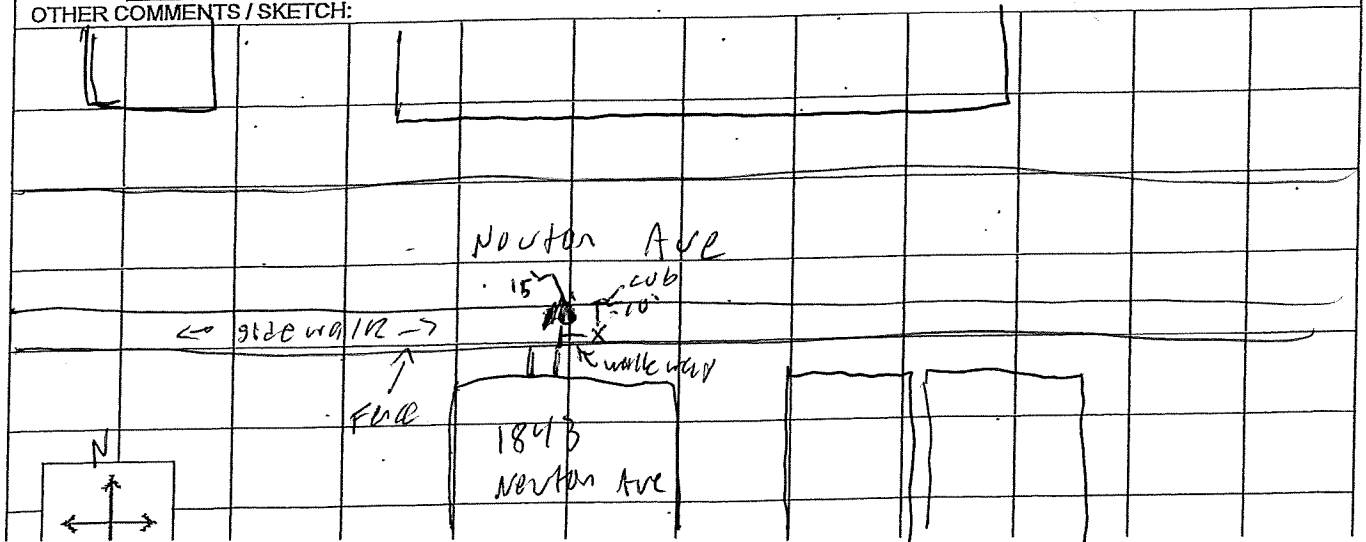 OTHER COMMENTS / SKETCH:
Newton Ave
15'
cub
10'
← sidewalk →
X
walkway
Fence
1843
Newton Ave
N